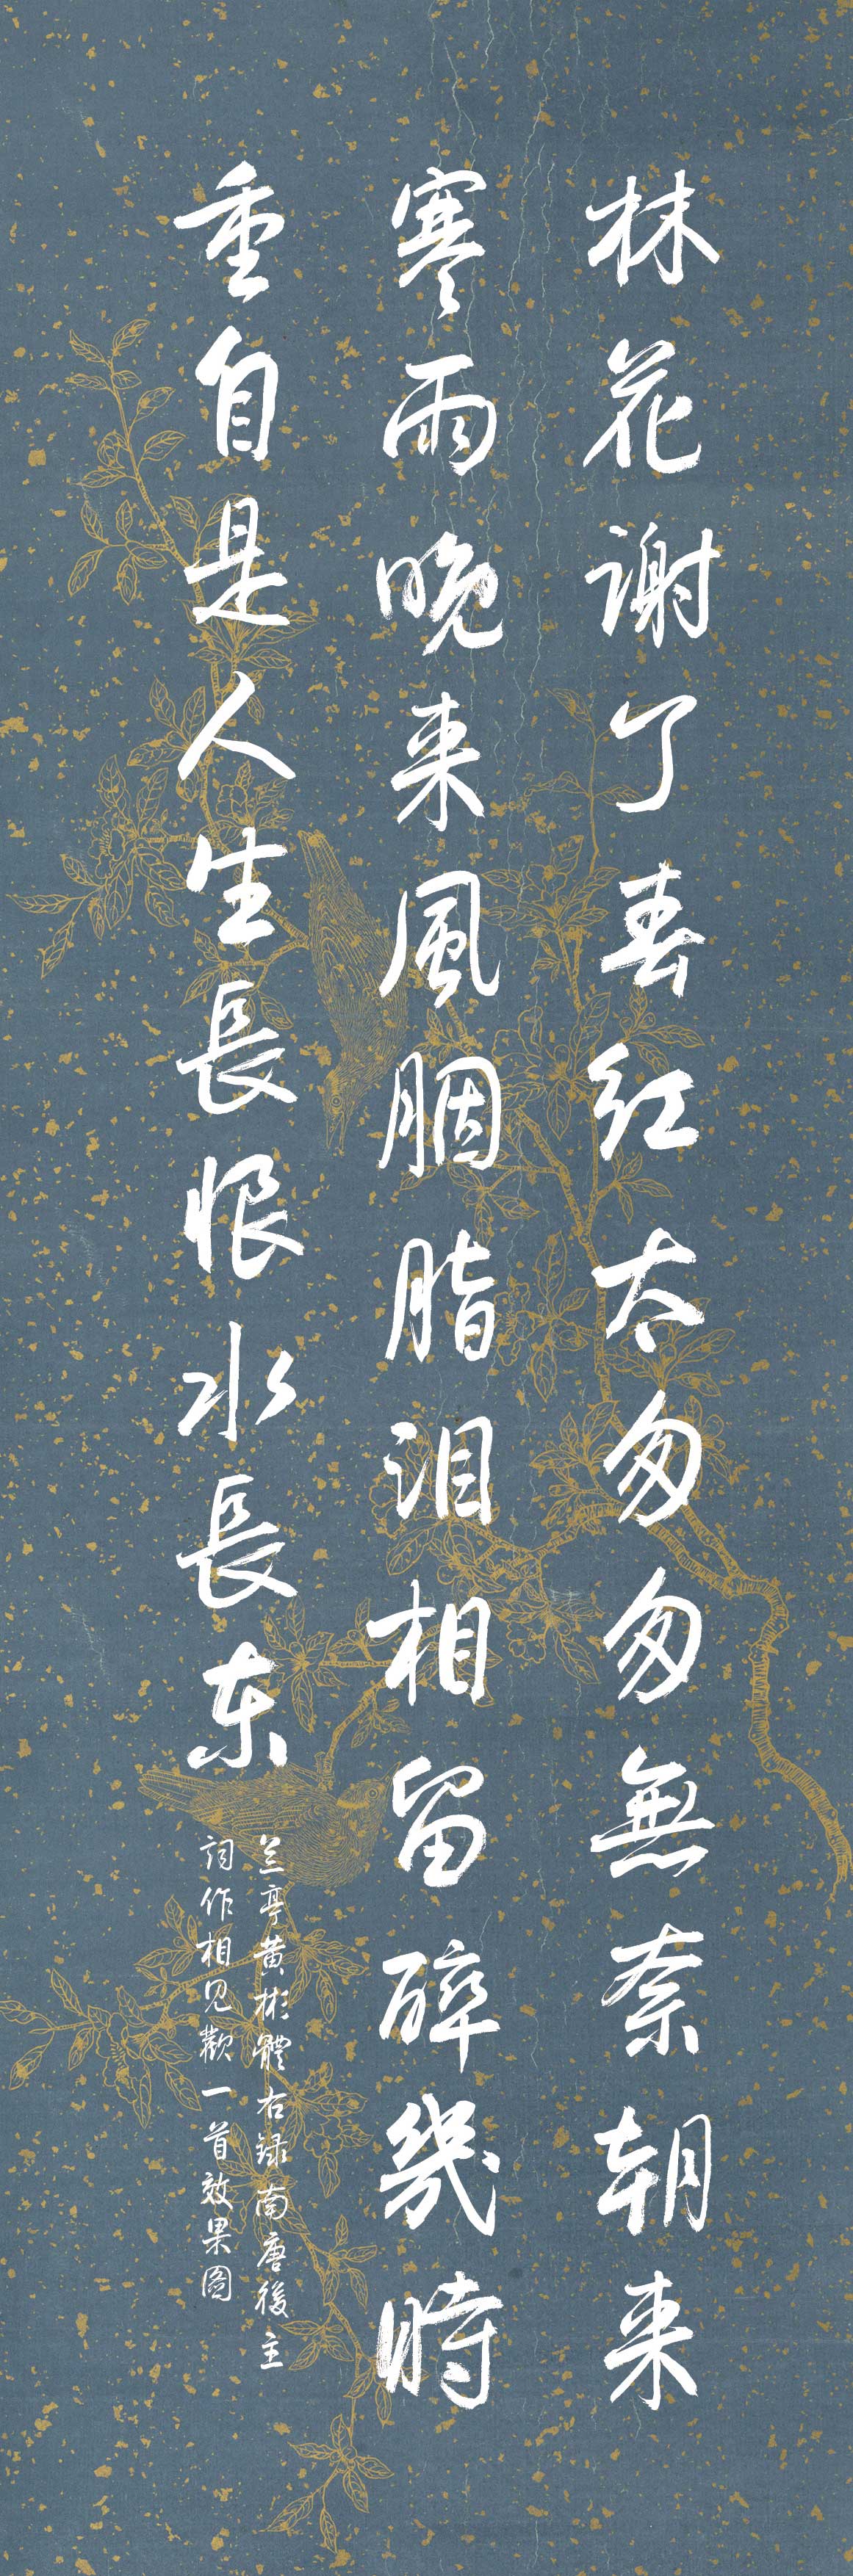 林花谢了春红太匆匆無奈朝来
寒雨晚来風胭脂泪相留醉幾時
重自是人生長恨水長东
兰亭黄彬體右録南唐後主
詞作相见歡一首效果图